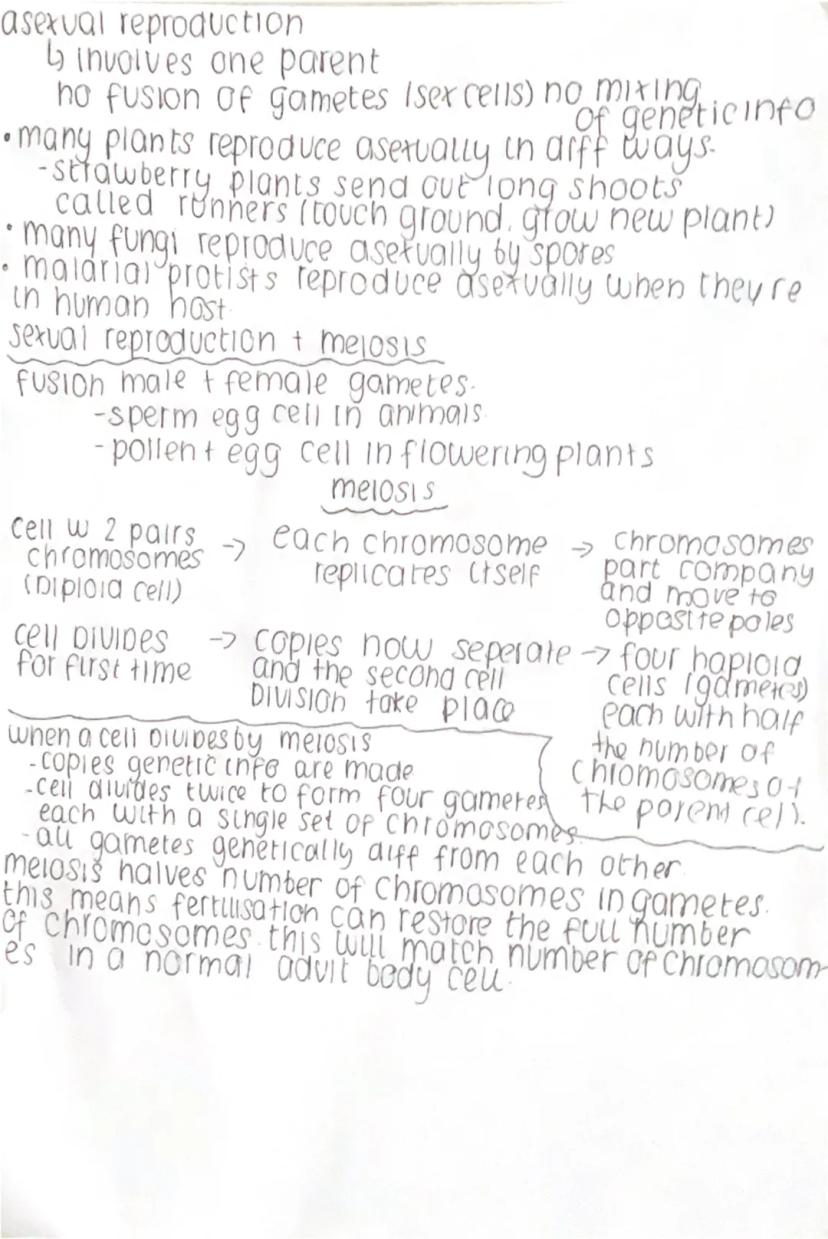 asexual reproduction
↳ involves one parent
no fusion of gametes (sex cells) no mixing
of genetic info
• many plants reproduce asexually in diff ways.
- strawberry plants send out long shoots
called runners (touch ground, grow new plant)
• many fungi reproduce asexually by spores
• malarial protists reproduce asexually when they're
in human host.
sexual reproduction + meiosis
fusion male + female gametes.
- sperm egg cell in animals
- pollen + egg cell in flowering plants
meiosis
cell w 2 pairs
chromosomes
(Diploid cell)
→ each chromosome
replicates itself
→ chromosomes
part company
and move to
opposite poles
cell DIVIDES
for first time
→ copies now seperate
and the second cell
DIVISION take place
→ four haploid
cells (gametes)
each with half
the number of
chromosomes of
the parent cell.
when a cell DIVIDES by meiosis
- copies genetic info are made
- cell divides twice to form four gametes
each with a single set of chromosomes
- all gametes genetically diff from each other.
meiosis halves number of chromosomes in gametes.
this means fertilisation can restore the full number
of chromosomes. this will match number of chromosom-
es in a normal adult body cell.